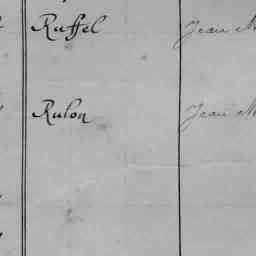 Ruffel Jean M
Rulon Jean M